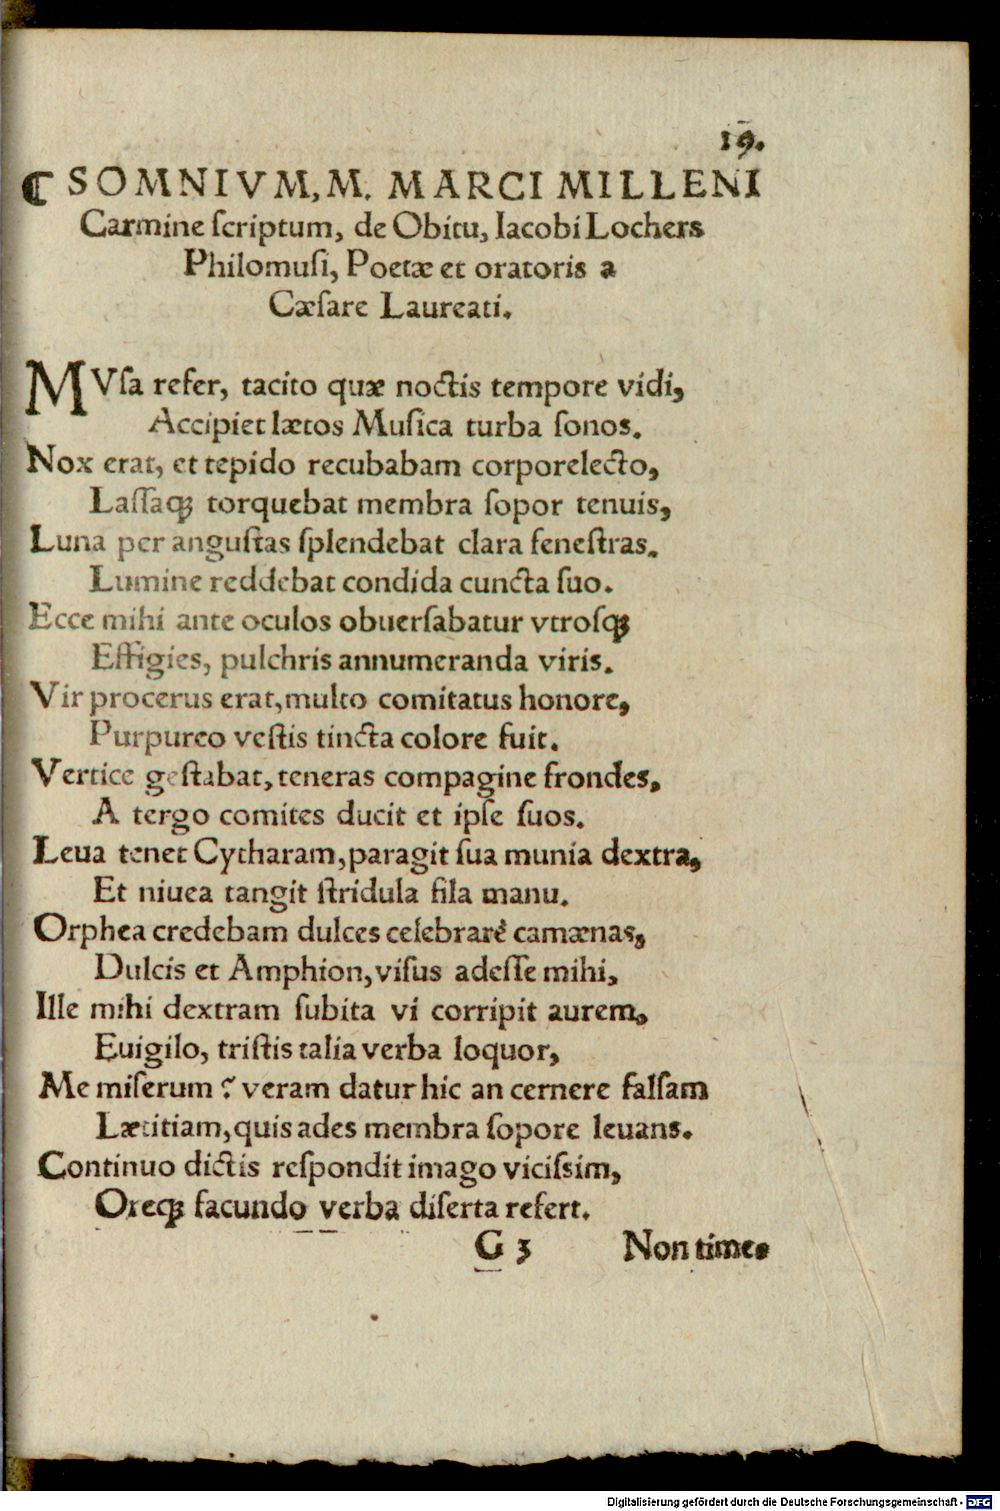 19.
⁋ SOMNIVM, M. MARCI MILLENI
Carmine ſcriptum, de Obitu, Iacobi Lochers
Philomuſi, Poetæ et oratoris a
Cæſare Laureati.
MVſa refer, tacito quæ noctis tempore vidi,
Accipiet lætos Muſica turba ſonos.
Nox erat, et tepido recubabam corporelecto,
Laſſaqꝫ torquebat membra ſopor tenuis,
Luna per anguſtas ſplendebat clara feneſtras.
Lumine reddebat condida cuncta ſuo.
Ecce mihi ante oculos obuerſabatur vtroſqꝫ
Effigies, pulchris annumeranda viris.
Vir procerus erat, multo comitatus honore,
Purpureo veſtis tincta colore fuit.
Vertice geſtabat, teneras compagine frondes,
A tergo comites ducit et ipſe ſuos.
Leua tenet Cytharam, paragit ſua munia dextra,
Et niuea tangit ſtridula fila manu.
Orphea credebam dulces celebrare camænas,
Dulcis et Amphion, viſus adeſſe mihi,
Ille mihi dextram ſubita vi corripit aurem,
Euigilo, triſtis talia verba loquor,
Me miſerum ? veram datur hic an cernere falſam
Lætitiam, quis ades membra ſopore leuans.
Continuo dictis reſpondit imago viciſsim,
Oreqꝫ facundo verba diſerta refert.
G 3 Non time.
Digitalisierung gefördert durch die Deutsche Forschungsgemeinschaft - DFG